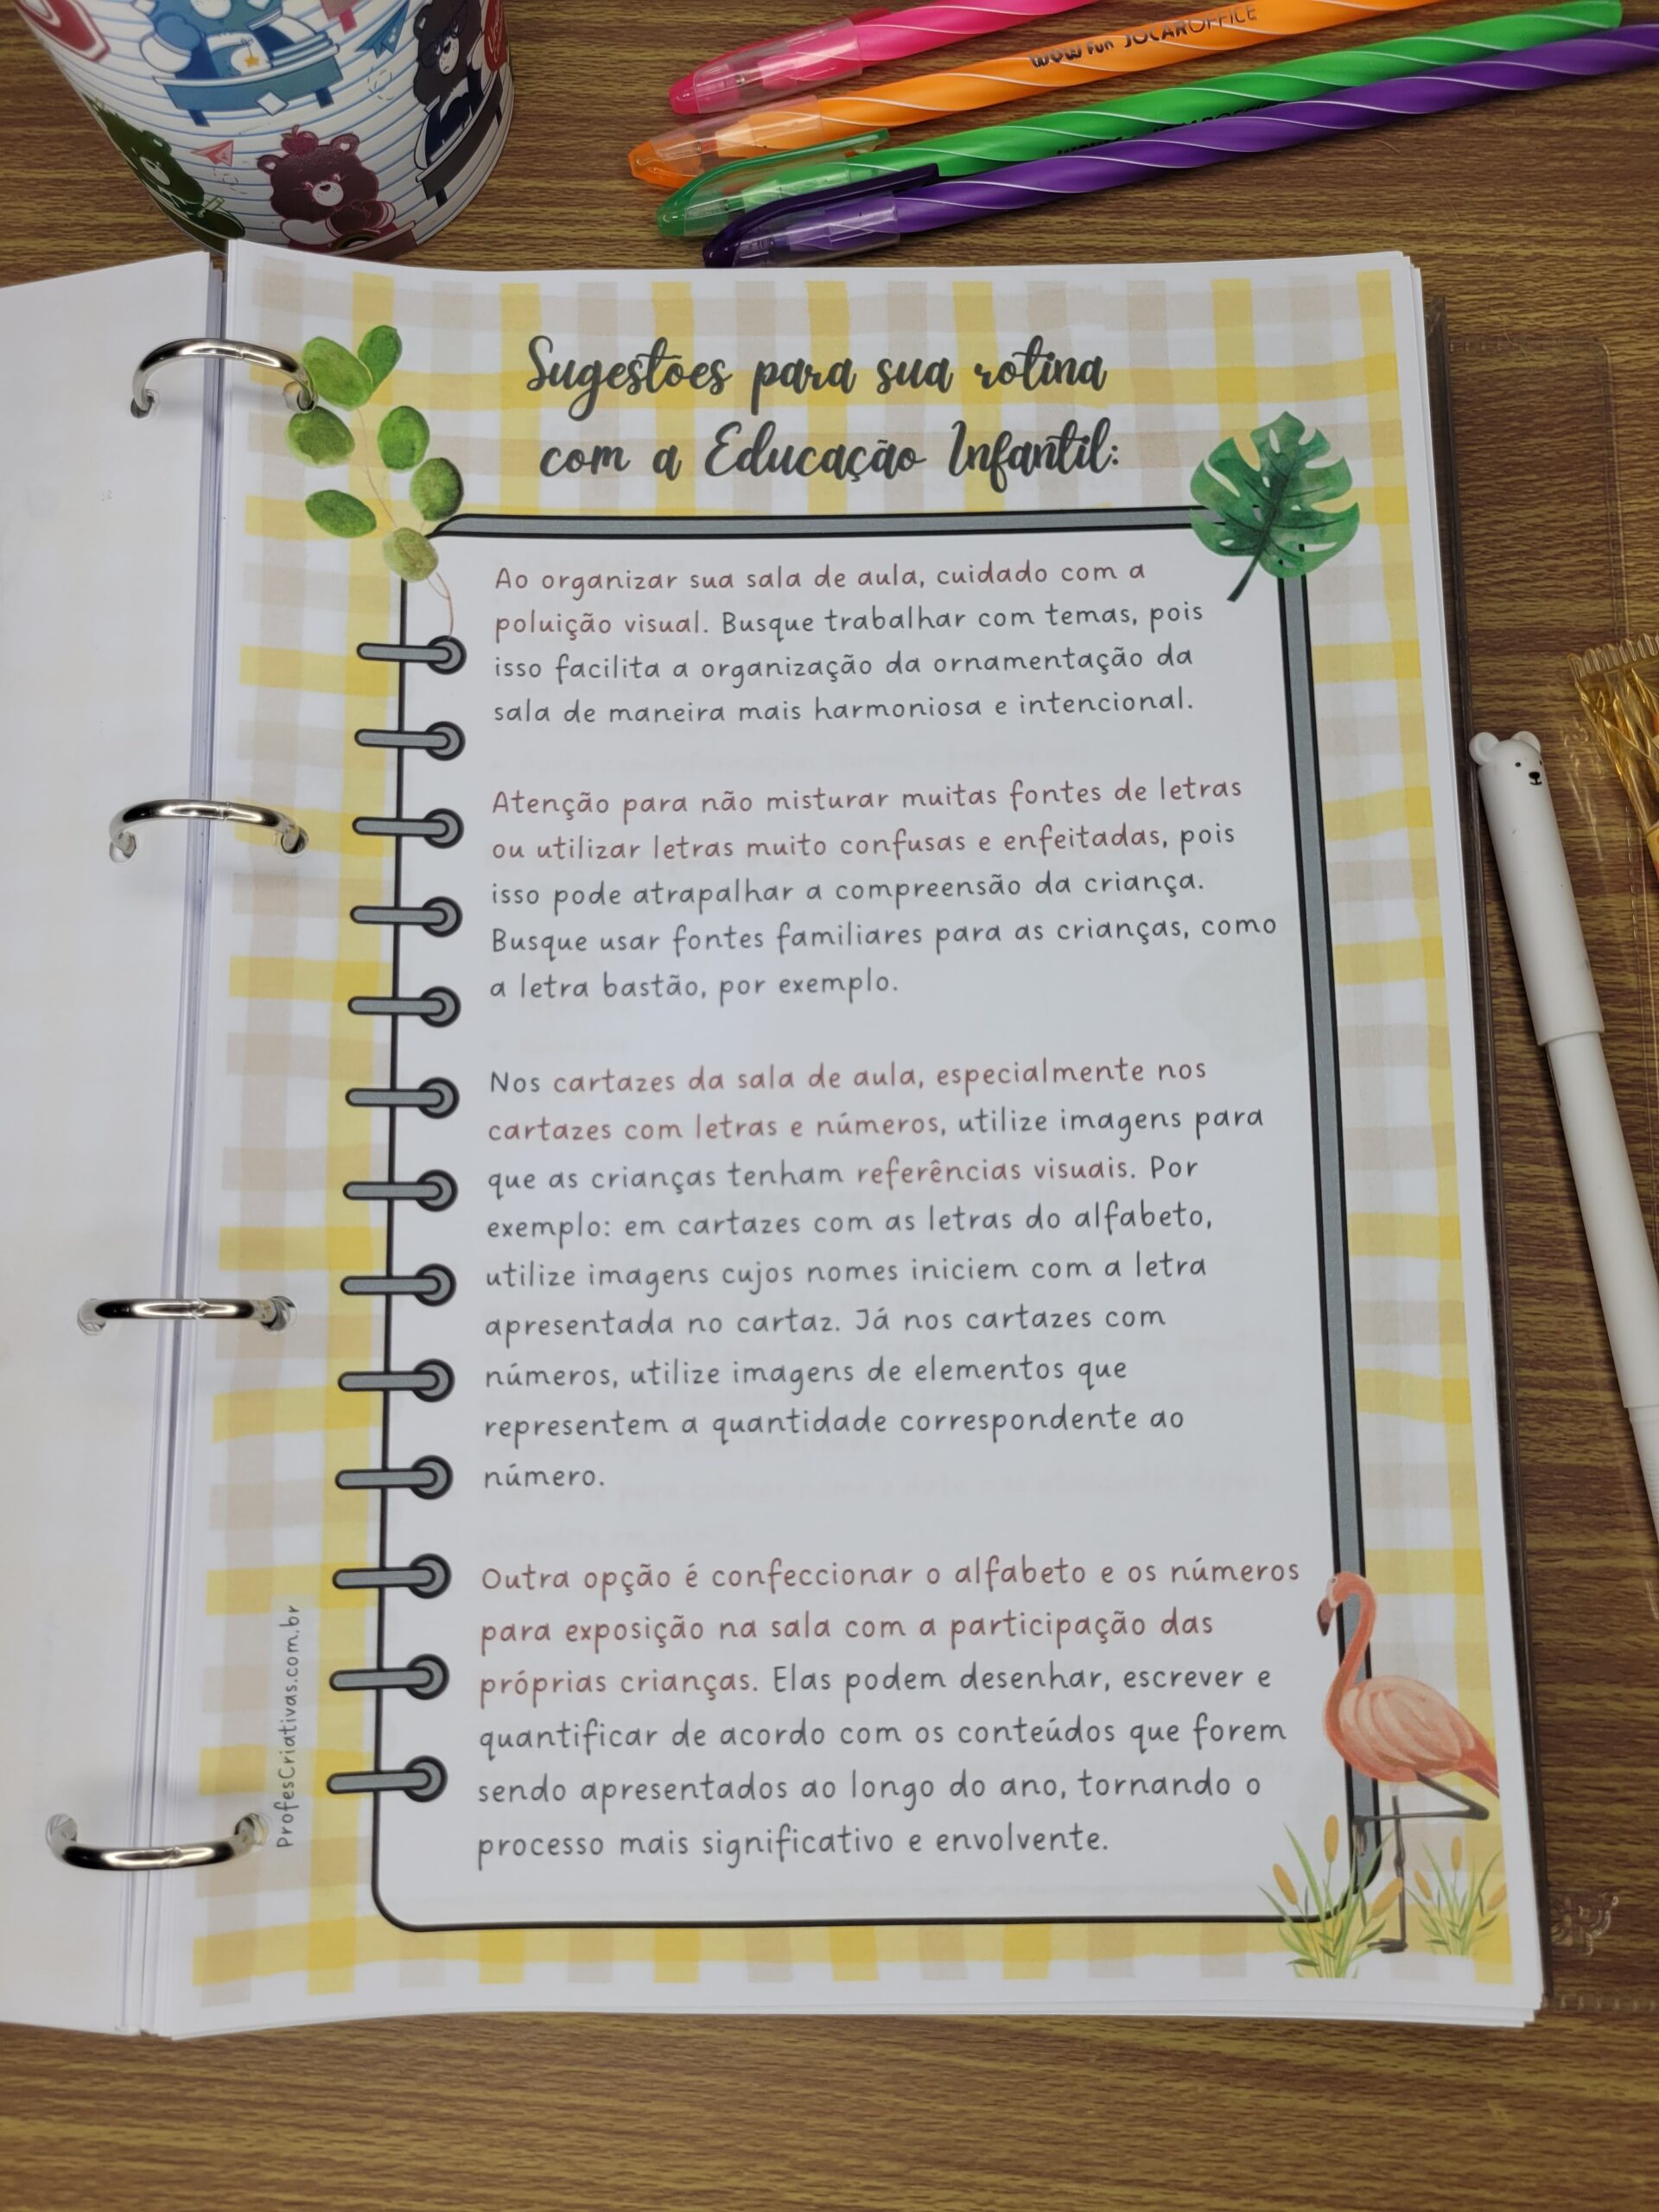 WOW Fun JOCAROFFICE
Sugestões para sua rotina
com a Educação Infantil:
Ao organizar sua sala de aula, cuidado com a
poluição visual. Busque trabalhar com temas, pois
isso facilita a organização da ornamentação da
sala de maneira mais harmoniosa e intencional.
Atenção para não misturar muitas fontes de letras
ou utilizar letras muito confusas e enfeitadas, pois
isso pode atrapalhar a compreensão da criança.
Busque usar fontes familiares para as crianças, como
a letra bastão, por exemplo.
Nos cartazes da sala de aula, especialmente nos
cartazes com letras e números, utilize imagens para
que as crianças tenham referências visuais. Por
exemplo: em cartazes com as letras do alfabeto,
utilize imagens cujos nomes iniciem com a letra
apresentada no cartaz. Já nos cartazes com
números, utilize imagens de elementos que
representem a quantidade correspondente ao
número.
Outra opção é confeccionar o alfabeto e os números
para exposição na sala com a participação das
próprias crianças. Elas podem desenhar, escrever e
quantificar de acordo com os conteúdos que forem
sendo apresentados ao longo do ano, tornando o
processo mais significativo e envolvente.
ProfesCriativas.com.br